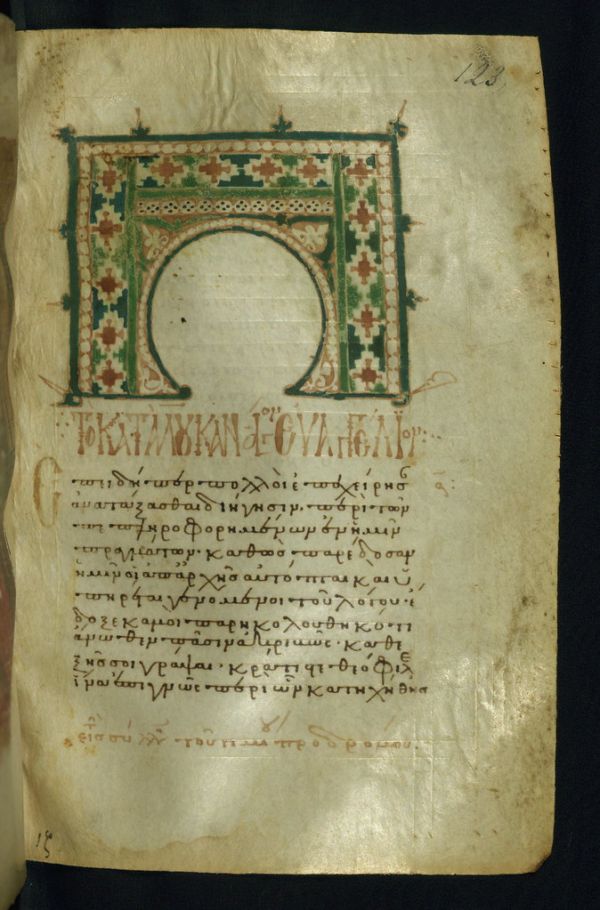 123
ΤΟ ΚΑΤΑ ΛΟΥΚΑΝ ΑΓΙΟΝ ΕΥΑΓΓΕΛΙΟΝ
Ἐπειδήπερ πολλοὶ ἐπεχείρησ
ἀνατάξασθαι διήγησιν· περὶ τῶν
πεπληροφορημένων ἐν ἡμῖν
πραγμάτων· καθὼς παρέδοσαν
ἡμῖν οἱ ἀπ' ἀρχῆς αὐτόπται καὶ ὑ
πηρέται γενόμενοι τοῦ λόγου· ἔ
δοξε κἀμοὶ παρηκολουθηκότι
ἄνωθεν πᾶσιν ἀκριβῶς· καθε
ξῆς σοι γράψαι· κράτιστε θεόφιλε
ἵνα ἐπιγνῶς περὶ ὧν κατηχήθης
τοῦ προδρόμου